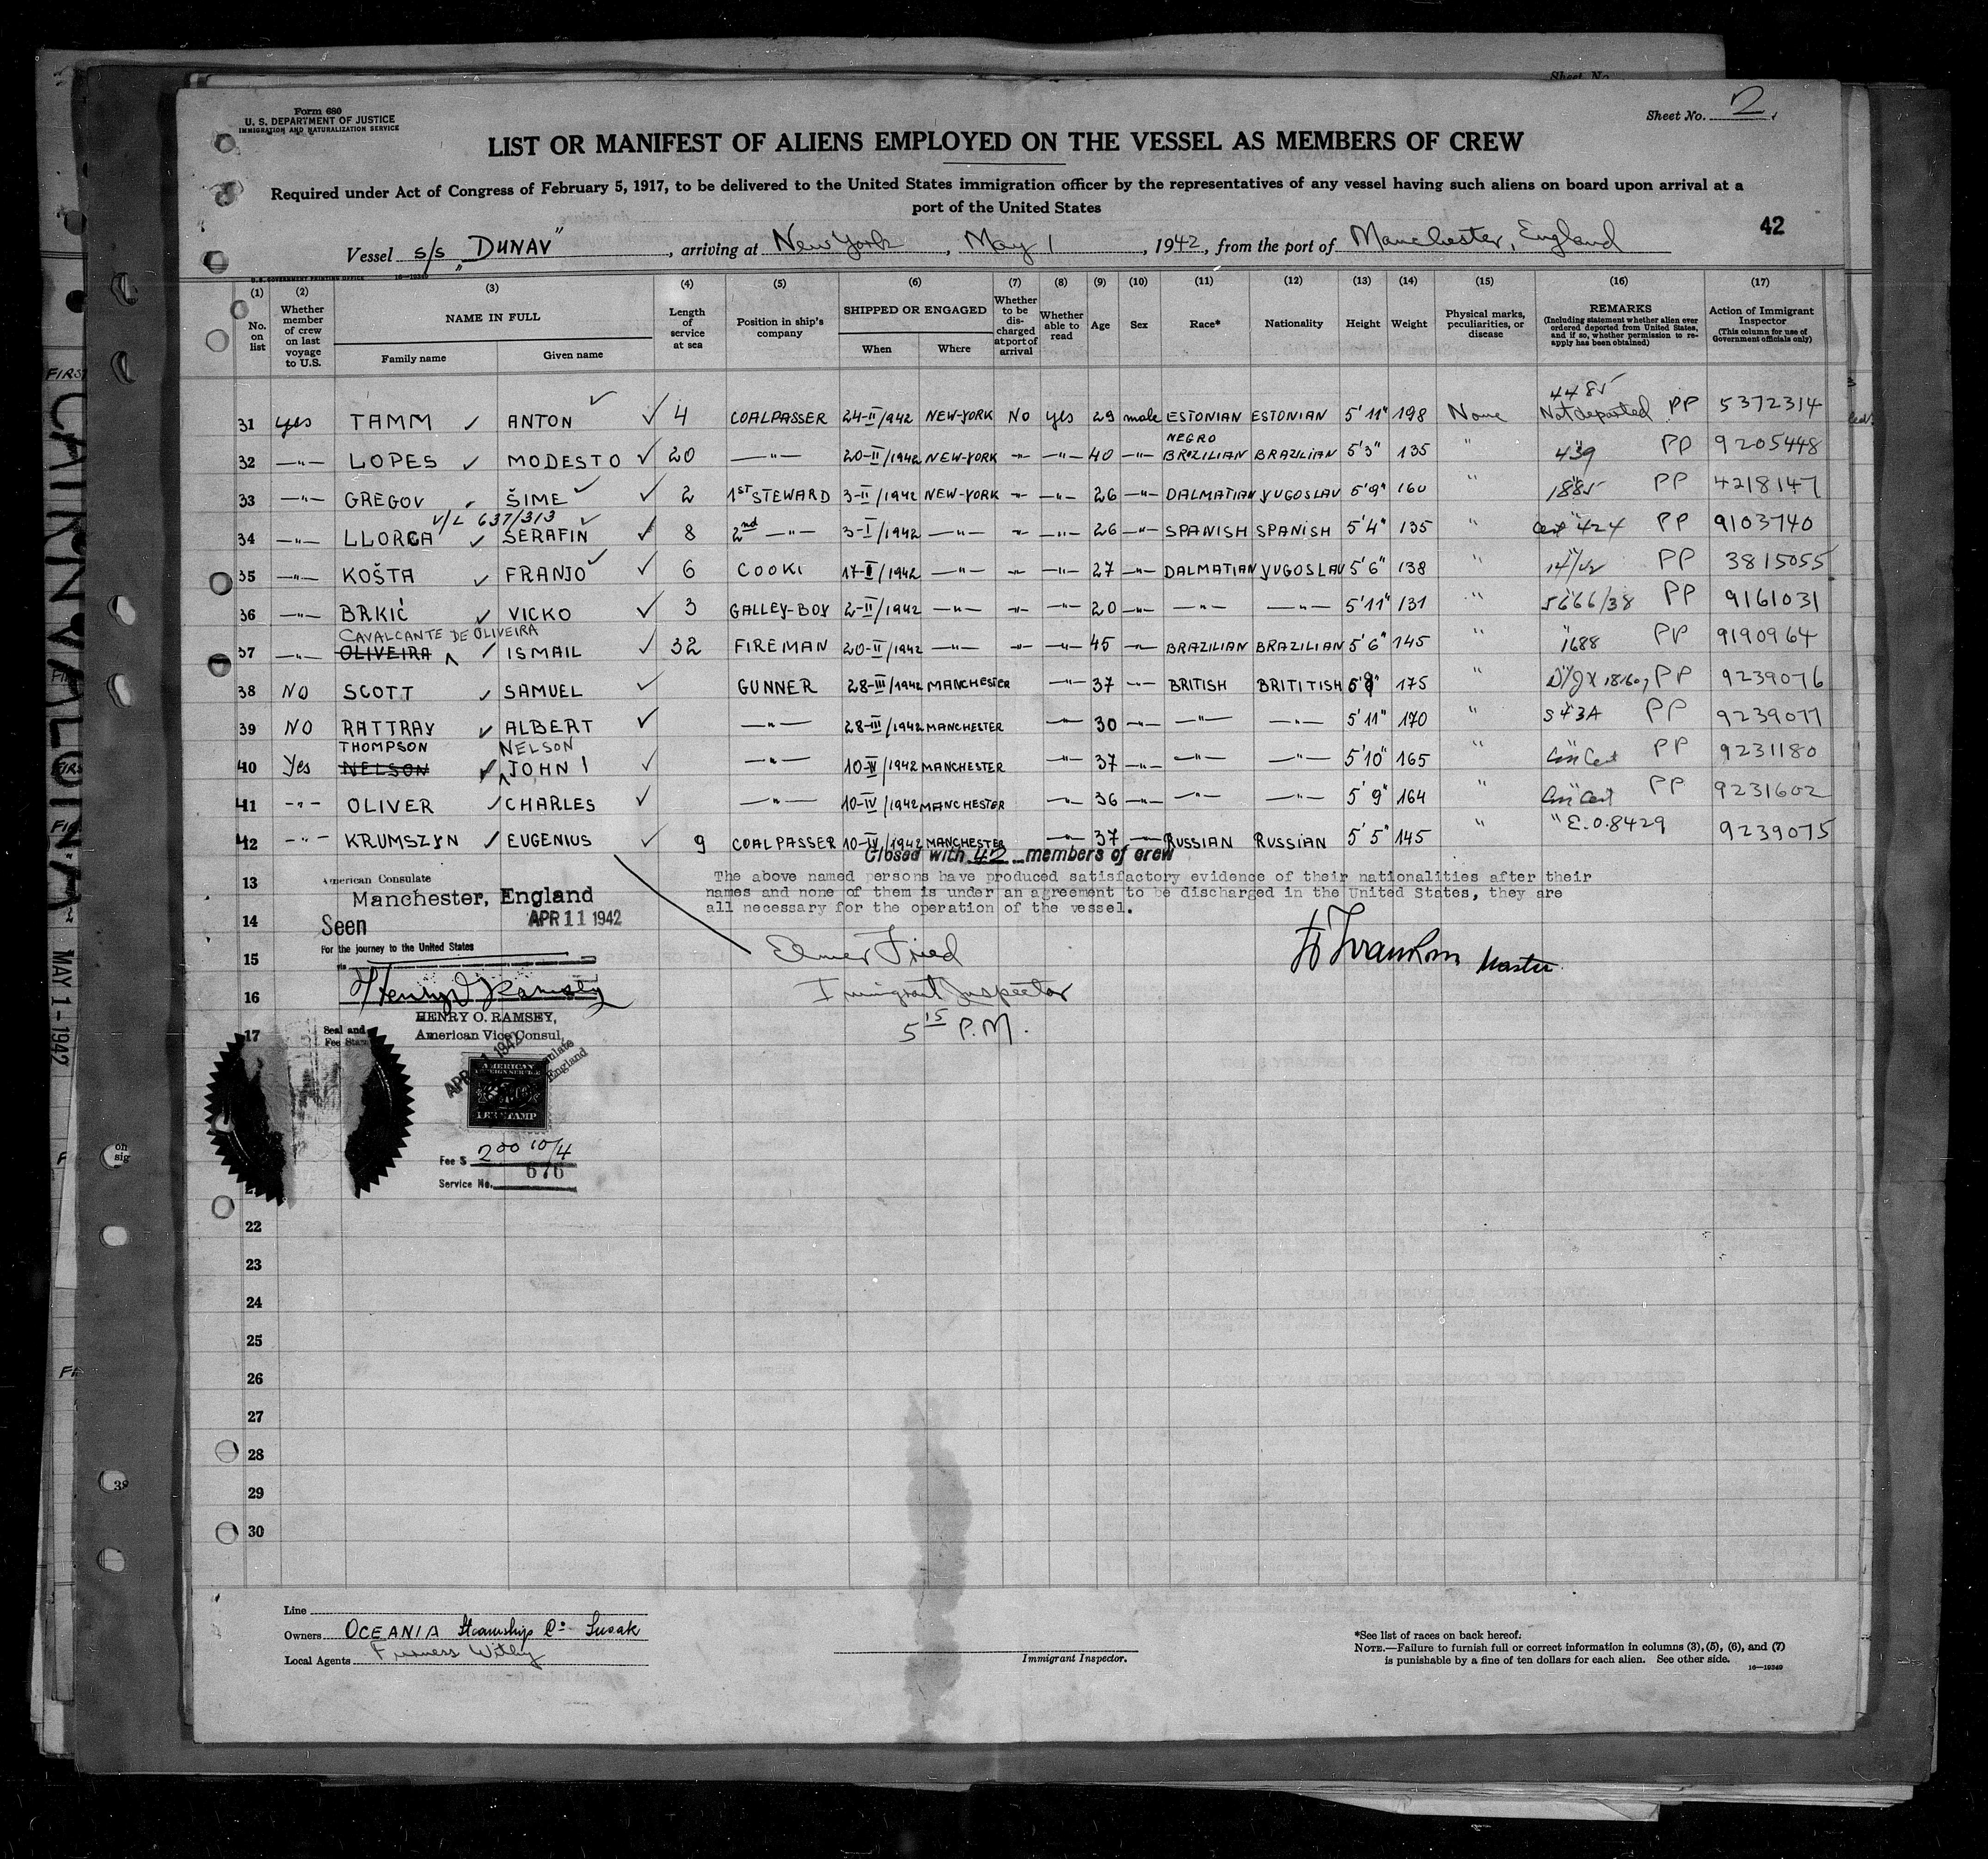 Form 680
U. S. DEPARTMENT OF JUSTICE
IMMIGRATION AND NATURALIZATION SERVICE
Sheet No. 2
LIST OR MANIFEST OF ALIENS EMPLOYED ON THE VESSEL AS MEMBERS OF CREW
Required under Act of Congress of February 5, 1917, to be delivered to the United States immigration officer by the representatives of any vessel having such aliens on board upon arrival at a
port of the United States
42
Vessel s/s "DUNAV", arriving at New York, May 1, 1942, from the port of Manchester, England
(1) (2) (3) (4) (5) (6) (7) (8) (9) (10) (11) (12) (13) (14) (15) (16) (17)
No. on list
Whether member of crew on last voyage to U.S.
NAME IN FULL
Family name Given name
Length of service at sea
Position in ship's company
SHIPPED OR ENGAGED
When Where
Whether to be discharged at port of arrival
Whether able to read
Age Sex Race* Nationality Height Weight
Physical marks, peculiarities, or disease
REMARKS
(Including statement whether alien ever ordered deported from United States, and if so, whether permission to reapply has been obtained)
Action of Immigrant Inspector
(This column for use of Government officials only)
4485
31 yes TAMM ANTON 4 COALPASSER 24-II/1942 NEW-YORK NO yes 29 male ESTONIAN ESTONIAN 5'11" 198 None Not deported PP 5372314
NEGRO
32 —"— LOPES MODESTO 20 —"— 20-II/1942 NEW-YORK —"— —"— 40 —"— BRAZILIAN BRAZILIAN 5'3" 135 " 439 PP 9205448
33 —"— GREGOV ŠIME 2 1ST STEWARD 3-II/1942 NEW-YORK —"— —"— 26 —"— DALMATIAN YUGOSLAV 5'9" 160 " 1885 PP 4218147
V/L 637/313
34 —"— LLORCA SERAFIN 8 2nd —"— 3-I/1942 —"— —"— —"— 26 —"— SPANISH SPANISH 5'4" 135 " Cert 424 PP 9103740
35 —"— KOŠTA FRANJO 6 COOK 17-II/1942 —"— —"— —"— 27 —"— DALMATIAN YUGOSLAV 5'6" 138 " 14/42 PP 3815055
36 —"— BRKIĆ VICKO 3 GALLEY-BOY 2-II/1942 —"— —"— —"— 20 —"— —"— —"— 5'11" 131 " 5666/38 PP 9161031
CAVALCANTE DE OLIVEIRA
37 —"— OLIVEIRA ISMAIL 32 FIREMAN 20-II/1942 —"— —"— —"— 45 —"— BRAZILIAN BRAZILIAN 5'6" 145 " 1688 PP 9190964
38 NO SCOTT SAMUEL GUNNER 28-III/1942 MANCHESTER —"— 37 —"— BRITISH BRITITISH 175 " PP 9239076
39 NO RATTRAY ALBERT —"— 28-III/1942 MANCHESTER —"— 30 —"— —"— —"— 5'11" 170 " S43A PP 9239077
THOMPSON NELSON
40 Yes NELSON JOHN —"— 10-IV/1942 MANCHESTER —"— 37 —"— —"— —"— 5'10" 165 " Cert PP 9231180
41 —"— OLIVER CHARLES —"— 10-IV/1942 MANCHESTER —"— 36 —"— —"— —"— 5'9" 164 " Cert PP 9231602
42 —"— KRUMSZYN EUGENIUS 9 COALPASSER 10-IV/1942 MANCHESTER —"— 37 —"— RUSSIAN RUSSIAN 5'5" 145 " " E.O.8429 9239075
Closed with 42 members of crew
13
The above named persons have produced satisfactory evidence of their nationalities after their
names and none of them is under an agreement to be discharged in the United States, they are
all necessary for the operation of the vessel.
American Consulate
Manchester, England
14 Seen APR 11 1942
For the journey to the United States
15 Elmer Fried Master
16 Immigrant Inspector
5 15 P.M.
HENRY O. RAMSEY,
American Vice Consul,
17 Seal and
Fee Stamp
AMERICAN
FOREIGN SERVICE
FEE STAMP
Fee $ 2.00 10/4
Service No. 676
22
23
24
25
26
27
28
29
30
Line
Owners OCEANIA Steamship Co. Susak
Local Agents Furness Withy
Immigrant Inspector.
*See list of races on back hereof.
NOTE.—Failure to furnish full or correct information in columns (3), (5), (6), and (7)
is punishable by a fine of ten dollars for each alien. See other side.
16—19349
CAIRNVALONA
MAY 1 - 1942